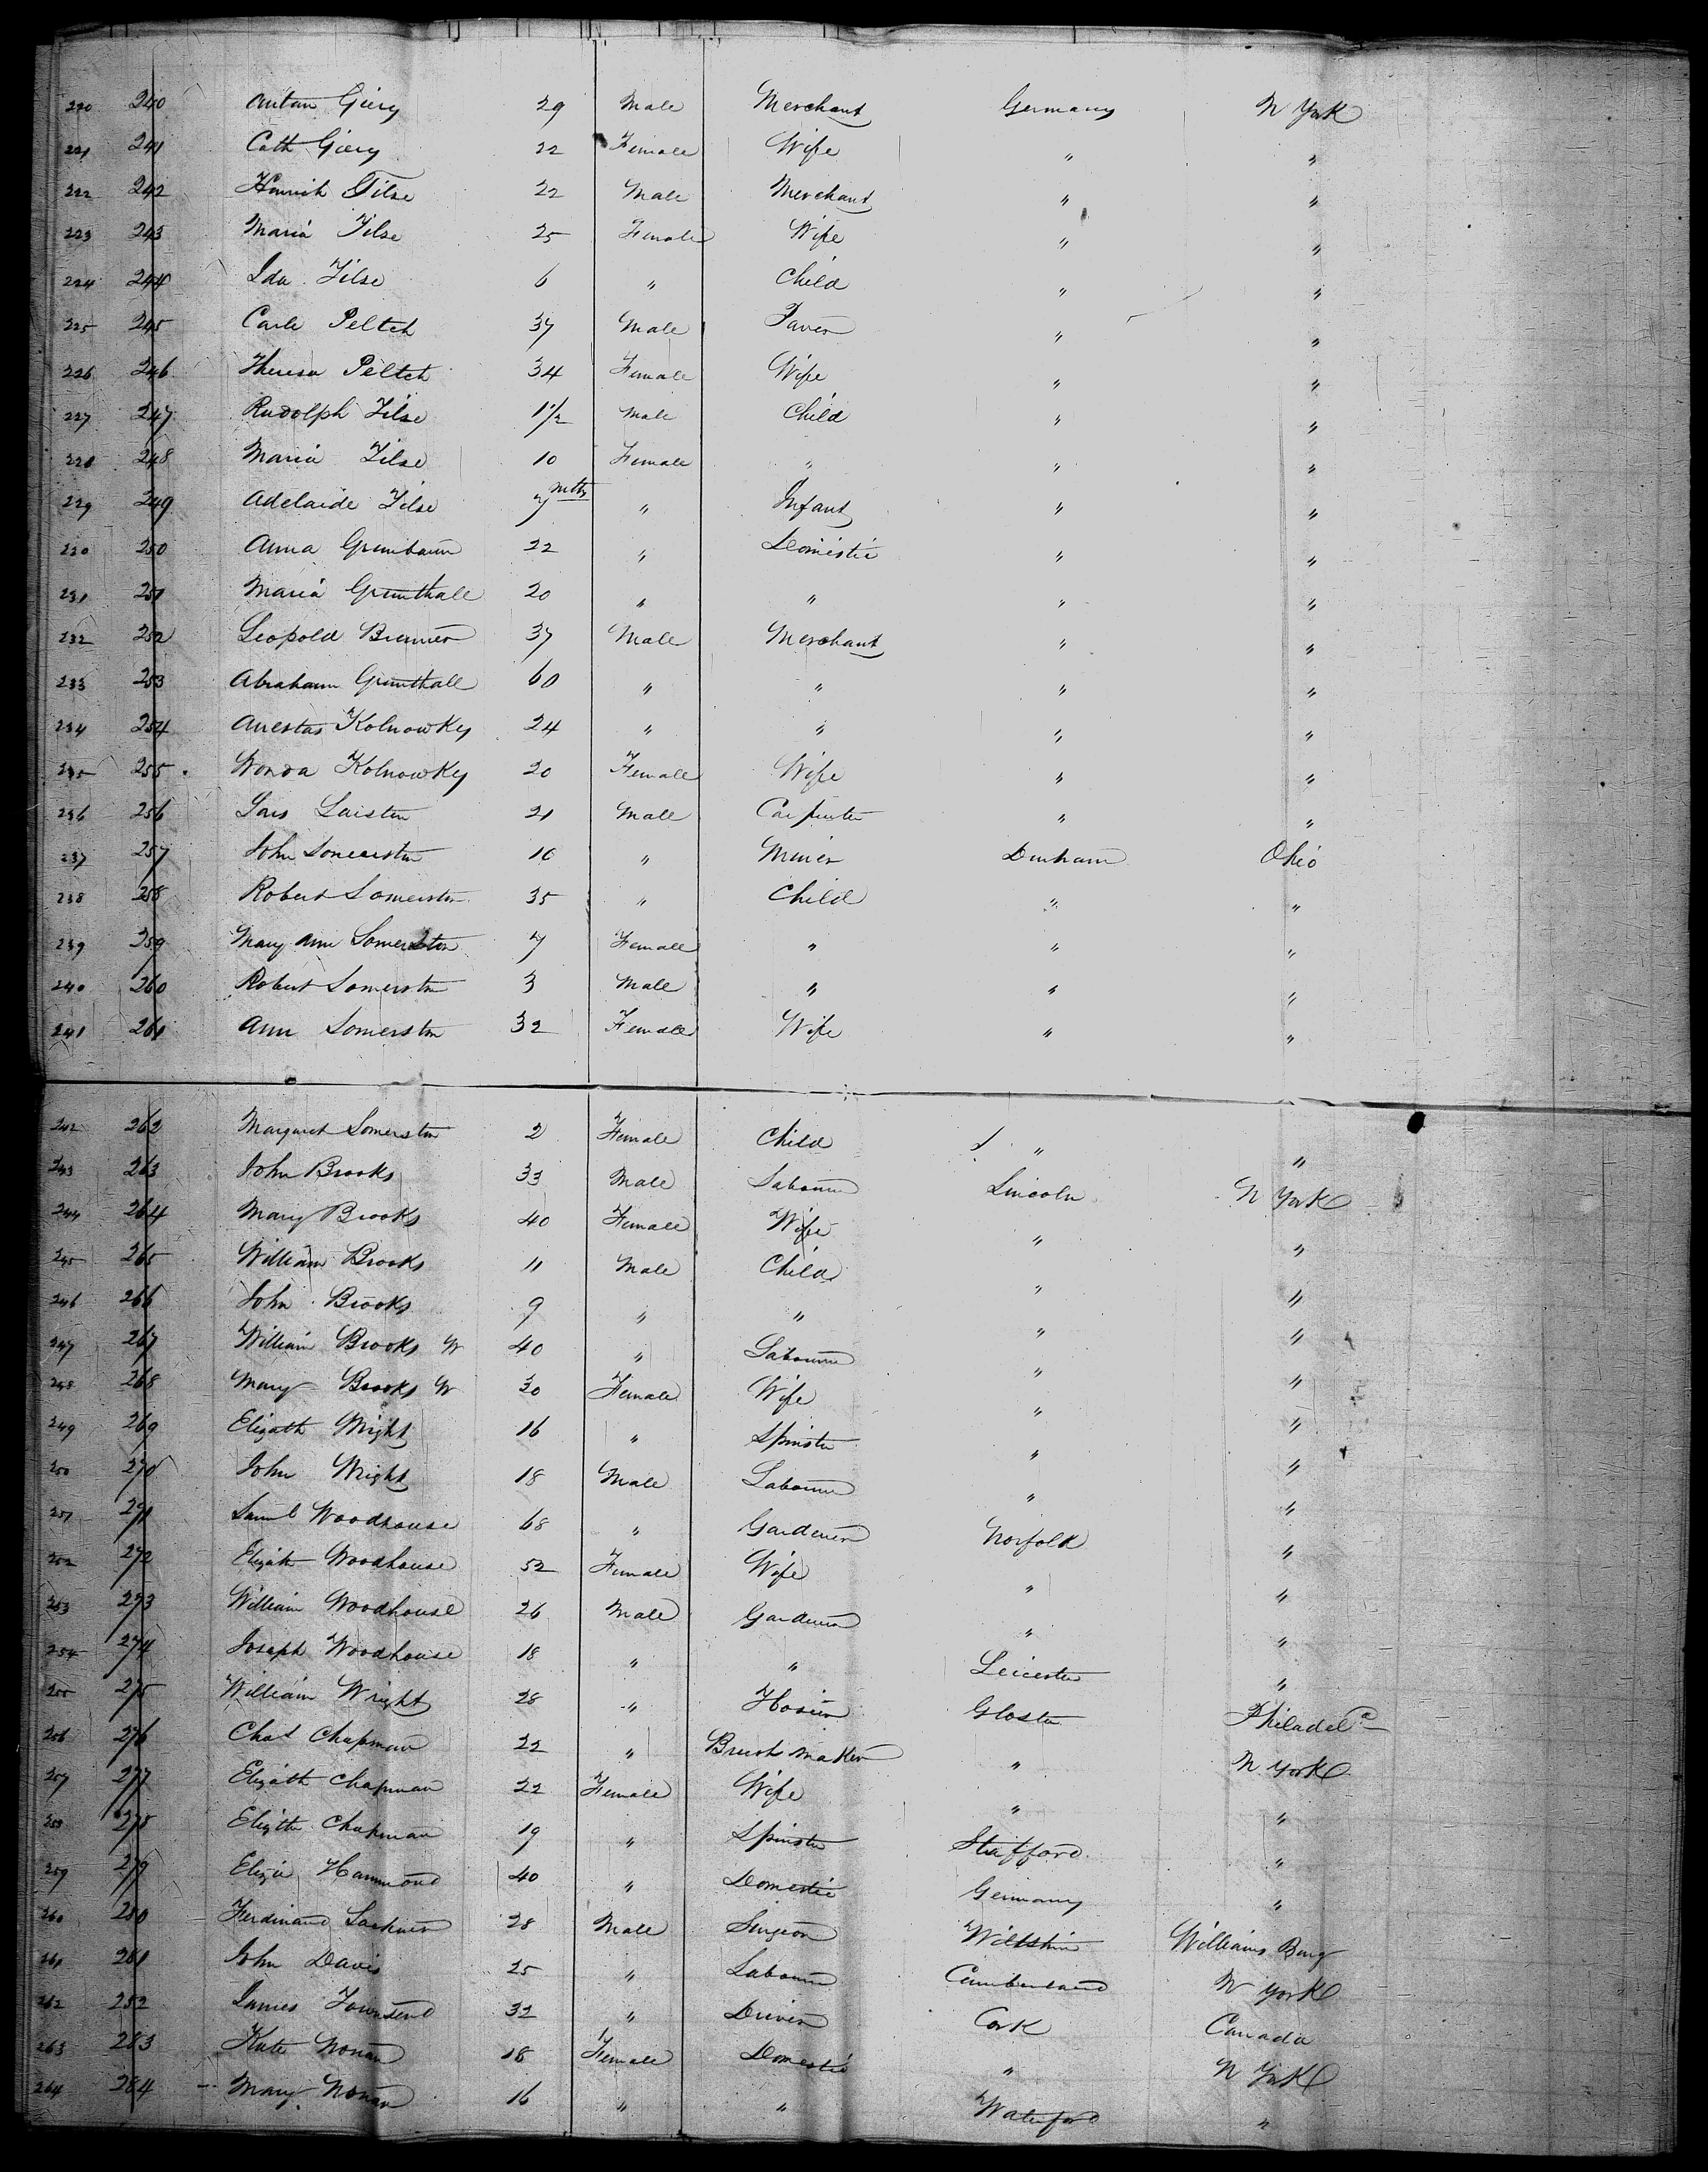 220 240 Antan Giery 29 Male Merchant Germany N York
221 241 Cath Giery 22 Female Wife " "
222 242 Henrich Filse 22 Male Merchant " "
223 243 Maria Filse 25 Female Wife " "
224 244 Ida Filse 6 " Child " "
225 245 Carle Peltch 37 Male " "
226 246 Theresa Peltch 34 Female Wife " "
227 247 Rudolph Filse 1 1/2 Male Child " "
228 248 Maria Filse 10 Female " " "
229 249 Adelaide Filse 7 mths " Infant " "
230 250 Anna Grunbaum 22 " Domestic " "
231 251 Maria Grunthall 20 " " " "
232 252 Leopold 37 Male Merchant " "
233 253 Abraham Grunthall 60 " " " "
234 254 Anestas Kolnowkey 24 " " " "
235 255 Wonda Kolnowkey 20 Female Wife " "
236 256 21 Male Carpenter " "
237 257 John Somerston 10 " Miner Durham Ohio
238 258 Robert Somerston 35 " Child " "
239 259 Mary Ann Somerston 7 Female " " "
240 260 Robert Somerston 3 Male " " "
241 261 Ann Somerston 32 Female Wife " "
242 262 Margaret Somerston 2 Female Child " "
243 263 John Brooks 33 Male Labourer Lincoln N York
244 264 Mary Brooks 40 Female Wife " "
245 265 William Brooks 11 Male Child " "
246 266 John Brooks 9 " " " "
247 267 William Brooks W 40 " Labourer " "
248 268 Mary Brooks W 30 Female Wife " "
249 269 Elizath Wright 16 " Spinster " "
250 270 John Wright 18 Male Labourer " "
251 271 Saml Woodhouse 68 " Gardener Norfolk "
252 272 Elizath Woodhouse 52 Female Wife " "
253 273 William Woodhouse 26 Male Gardener " "
254 274 Joseph Woodhouse 18 " " Leicester "
255 275 William Wright 28 " Hosier Gloster Philadela
256 276 Chas Chapman 22 " Brush Maker " N York
257 277 Elizath Chapman 22 Female Wife " "
258 278 Elizth Chapman 19 " Spinster Stafford "
259 279 Eliza Hammond 40 " Domestic Germany "
260 280 Ferdinand 28 Male Surgeon Wiltshire Williams Burg
261 281 John Davis 25 " Labourer Cumberland N York
262 282 James Townsend 32 " Driver Cork Canada
263 283 Kate Nonan 18 Female Domestic " N York
264 284 Mary Nonan 16 " " Waterford "